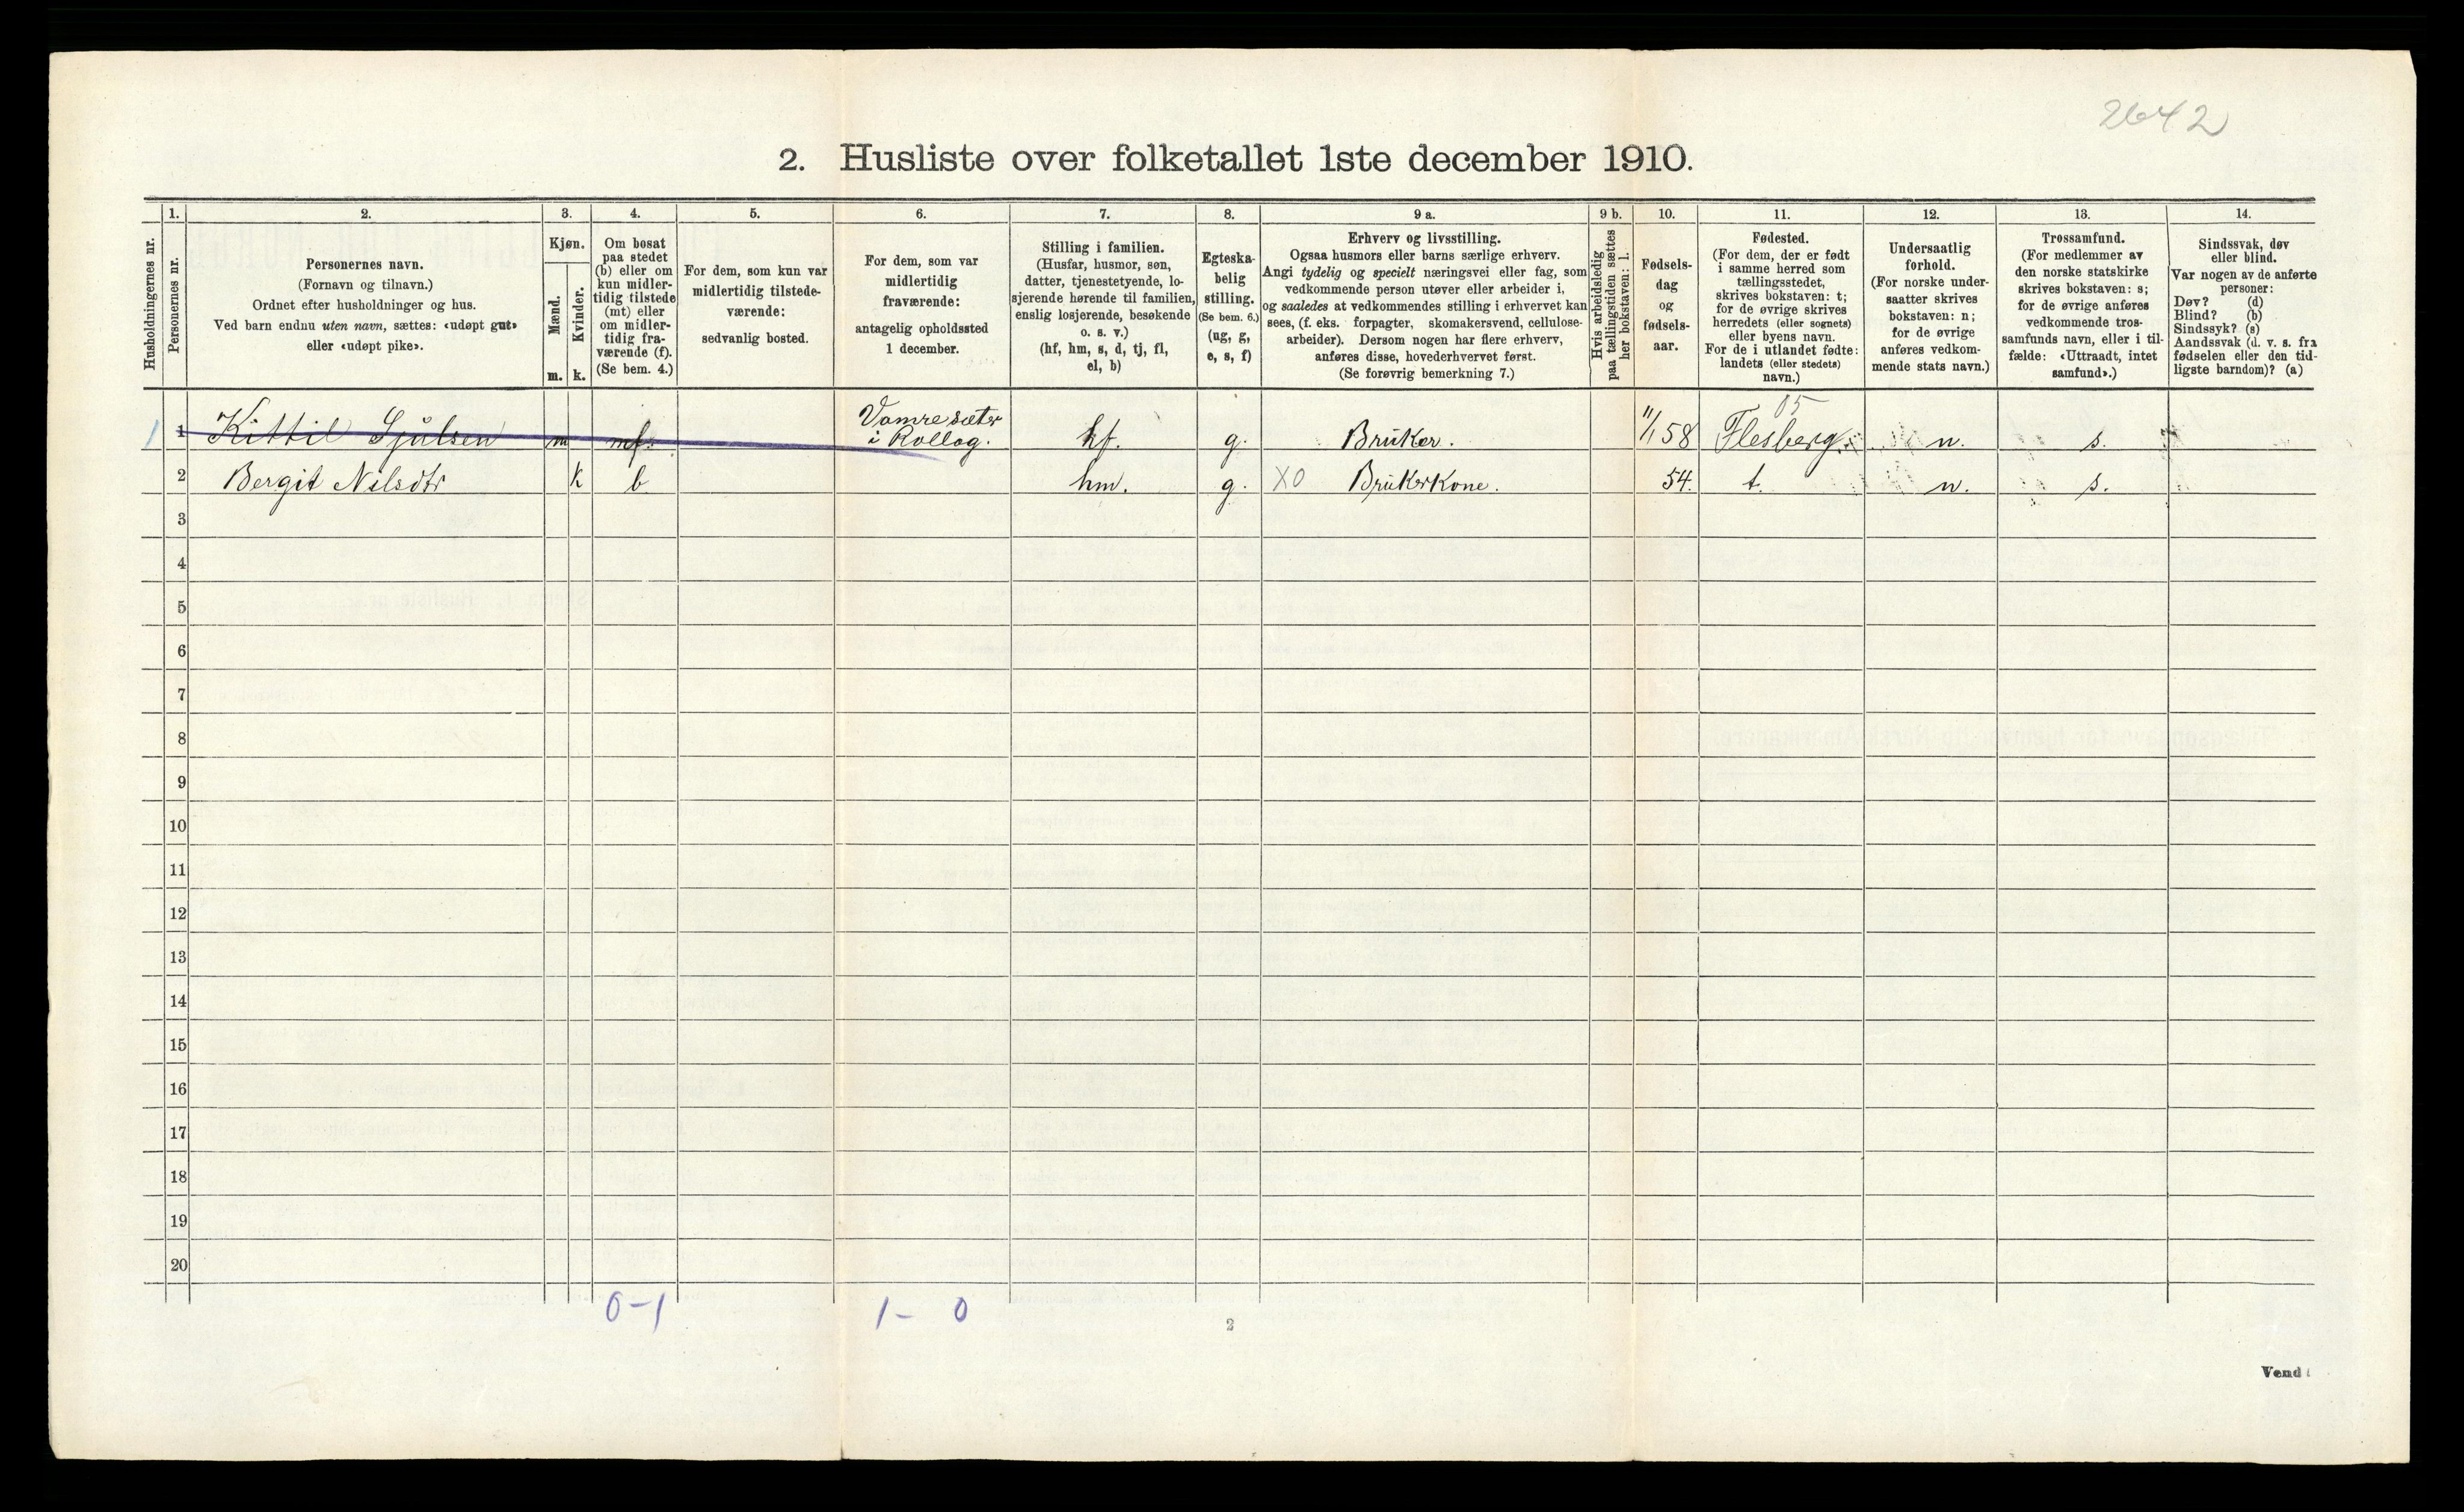 2642
2. Husliste over folketallet 1ste december 1910.
Husholdningernes nr.
1.
Personernes nr.
2.
Personernes navn.
(Fornavn og tilnavn.)
Ordnet efter husholdninger og hus.
Ved barn endnu uten navn, sættes: «udøpt gut»
eller «udøpt pike».
3.
Kjøn.
Mænd.
m.
Kvinder.
k.
4.
Om bosat
paa stedet
(b) eller om
kun midler-
tidig tilstede
(mt) eller
om midler-
tidig fra-
værende (f).
(Se bem. 4.)
5.
For dem, som kun var
midlertidig tilstede-
værende:
sedvanlig bosted.
6.
For dem, som var
midlertidig
fraværende:
antagelig opholdssted
1 december.
7.
Stilling i familien.
(Husfar, husmor, søn,
datter, tjenestetyende, lo-
sjerende hørende til familien,
enslig losjerende, besøkende
o. s. v.)
(hf, hm, s, d, tj, fl,
el, b)
8.
Egteska-
belig
stilling.
(Se bem. 6.)
(ug, g,
e, s, f)
9 a.
Erhverv og livsstilling.
Ogsaa husmors eller barns særlige erhverv.
Angi tydelig og specielt næringsvei eller fag, som
vedkommende person utøver eller arbeider i,
og saaledes at vedkommendes stilling i erhvervet kan
sees, (f. eks. forpagter, skomakersvend, cellulose-
arbeider). Dersom nogen har flere erhverv,
anføres disse, hovederhvervet først.
(Se forøvrig bemerkning 7.)
9 b.
Hvis arbeidsledig
paa tællingstiden sættes
her bokstaven: l.
10.
Fødsels-
dag
og
fødsels-
aar.
11.
Fødested.
(For dem, der er født
i samme herred som
tællingsstedet,
skrives bokstaven: t;
for de øvrige skrives
herredets (eller sognets)
eller byens navn.
For de i utlandet fødte:
landets (eller stedets)
navn.)
12.
Undersaatlig
forhold.
(For norske under-
saatter skrives
bokstaven: n;
for de øvrige
anføres vedkom-
mende stats navn.)
13.
Trossamfund.
(For medlemmer av
den norske statskirke
skrives bokstaven: s;
for de øvrige anføres
vedkommende tros-
samfunds navn, eller i til-
fælde: «Uttraadt, intet
samfund».)
14.
Sindssvak, døv
eller blind.
Var nogen av de anførte
personer:
Døv? (d)
Blind? (b)
Sindssyk? (s)
Aandssvak (d. v. s. fra
fødselen eller den tid-
ligste barndom)? (a)
1 1 Kittil Sjulsen m mf. Vamresæter i Rollag. hf. g. Bruker. 11/1 58 05 Flesberg. n. s.
2 Bergit Nilsdtr k b hm. g. XO Brukerkone. 54. t. n. s.
3
4
5
6
7
8
9
10
11
12
13
14
15
16
17
18
19
20
0-1 1- 0
2
Vend